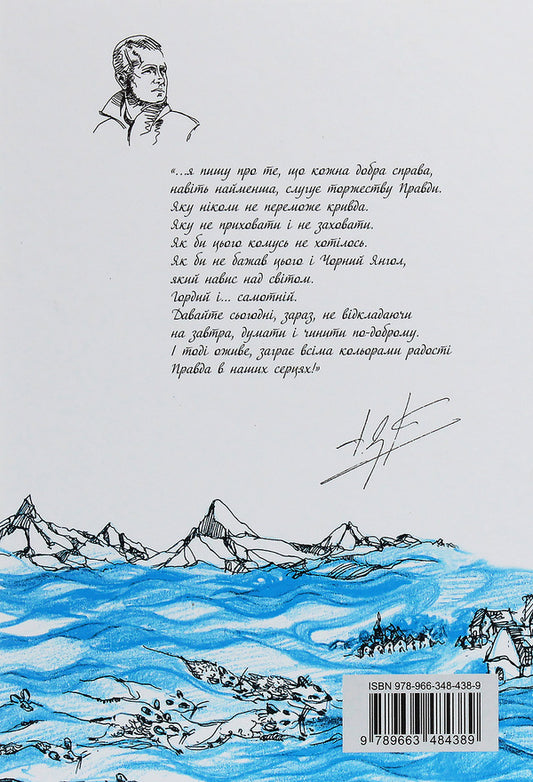 «...я пишу про те, що кожна добра справа,
навіть найменша, слугує торжеству Правди.
Яку ніколи не переможе кривда.
Яку не приховати і не заховати.
Як би цього комусь не хотілось.
Як би не бажав цього і Чорний Янгол,
який навис над світом.
Гордий і... самотній.
Давайте сьогодні, зараз, не відкладаючи
на завтра, думати і чинити по-доброму.
І тоді оживе, заграє всіма кольорами радості
Правда в наших серцях!»
ISBN 978-966-348-438-9
9 789663 484389